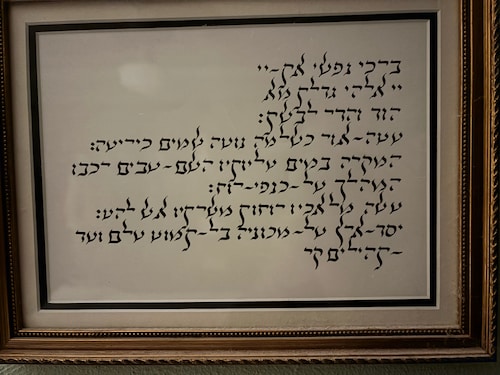 ברכי נפשי את-יי
יי אלהי גדלת מאד
הוד והדר לבשת:
עטה-אור כשלמה נוטה שמים כיריעה:
המקרה במים עליותיו השם-עבים רכבו
המהלך על-כנפי-רוח:
עשה מלאכיו רוחות משרתיו אש להט:
יסד-ארץ על-מכוניה בל-תמוט עולם ועד
-תהילים קד